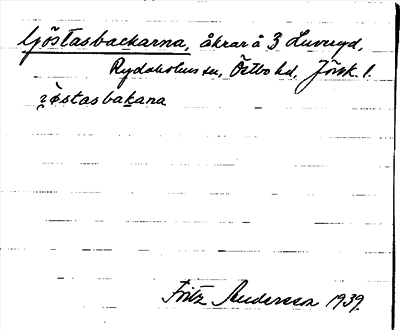 Gjöstasbackarna, åkrar å 3 Luveryd,
Rydaholms sn, Östbo hd, Jönk. l.
jöstasbakana
Fritz Andersson 1939.